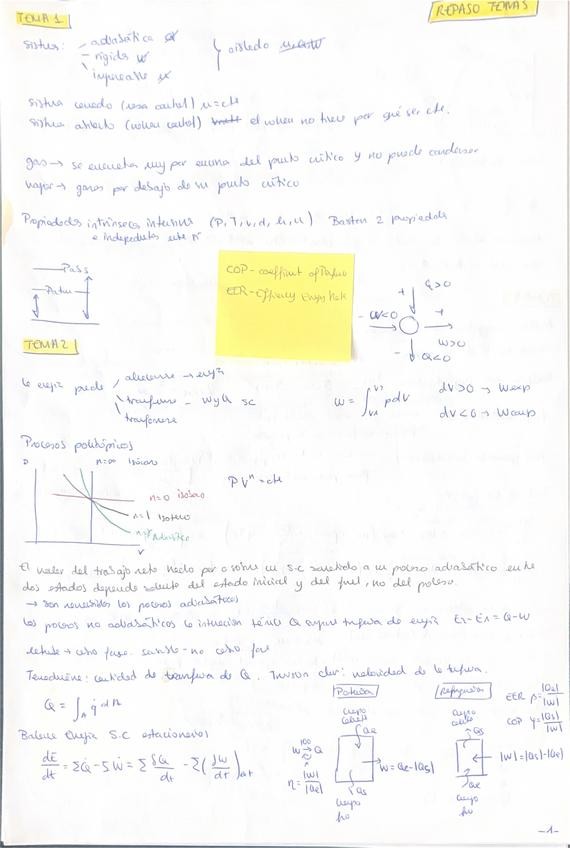 REPASO TEMAS
TEMA 1
sistema: adiabática Q
rígida W
impermeable
aislado
sistema cerrado (masa control) m=cte
sistema abierto (volumen control) el volumen no tiene por qué ser cte.
gas → se encuentra muy por encima del punto crítico y no puede condensar
vapor → gases por debajo de su punto crítico
Propiedades intrínsecas intensivas (P, T, v, d, h, u) Bastan 2 propiedades
e independientes entre sí
Pabs
Patm
COP - coefficient of
EER - Efficiency Energy
+ Q>0
- W<0
+ W>0
- Q<0
TEMA 2
la energía puede almacenarse → energía
transferirse - W y Q SC
transformarse
W = ∫ p dV
V1 V2
dV>0 → Wexp
dV<0 → Wcomp
Procesos politrópicos
n=∞ isócoro
n=0 isóbaro
n=1 isotermo
n=γ Adiabático
V
PV^n = cte
El valor del trabajo neto hecho por o sobre un S.C sometido a un proceso adiabático entre
dos estados depende solamente del estado inicial y del final, no del proceso.
→ son reversibles los procesos adiabáticos
Los procesos no adiabáticos la interacción térmica Q supone transferencia de energía E2-E1=Q-W
latente → cambio fase. sensible - no cambio fase
Termodinámica: cantidad de transferencia de Q. Transmisión calor: velocidad de la transferencia.
Q = ∫A q̇ dA
Balance Energía S.C estacionarios
dE/dt = ΣQ̇ - ΣẆ = Σ δQ/dt - Σ(δW/dt)
Potencia
cuerpo caliente
Qe
W = Qe-|Qs|
Qs
cuerpo frío
W →100 Q
η = |W|/|Qe|
Refrigeración
cuerpo caliente
Qs
|W|=|Qs|-|Qe|
Qe
cuerpo frío
EER β=|Qe|/|W|
COP γ=|Qs|/|W|
-1-